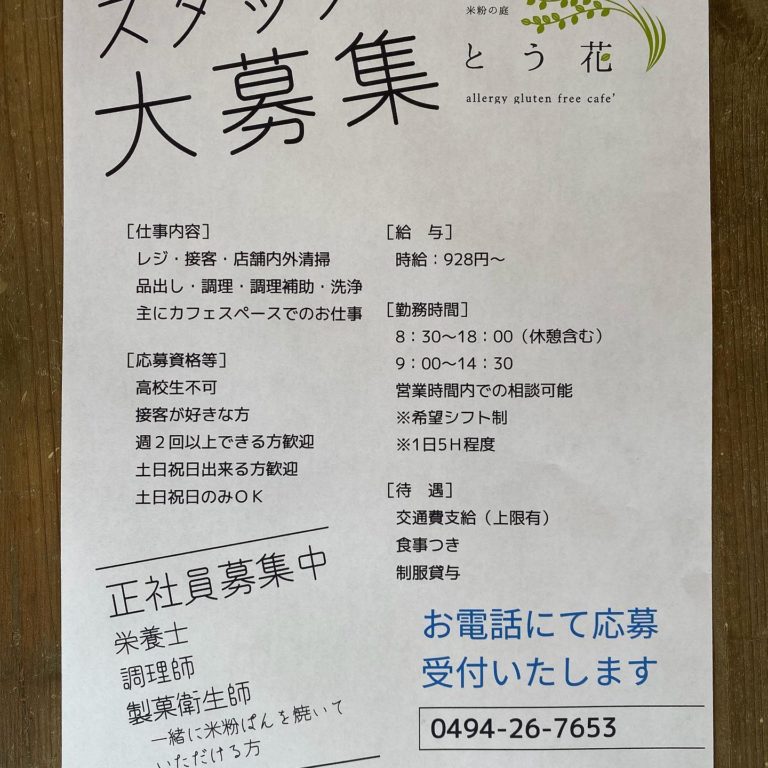 スタッフ
大募集
米粉の庭
とう花
allergy gluten free cafe’
［仕事内容］
レジ・接客・店舗内外清掃
品出し・調理・調理補助・洗浄
主にカフェスペースでのお仕事
［応募資格等］
高校生不可
接客が好きな方
週２回以上できる方歓迎
土日祝日出来る方歓迎
土日祝日のみＯＫ
［給　与］
時給：928円～
［勤務時間］
8：30～18：00（休憩含む）
9：00～14：30
営業時間内での相談可能
※希望シフト制
※1日5Ｈ程度
［待　遇］
交通費支給（上限有）
食事つき
制服貸与
正社員募集中
栄養士
調理師
製菓衛生師
一緒に米粉ぱんを焼いて
いただける方
お電話にて応募
受付いたします
0494-26-7653